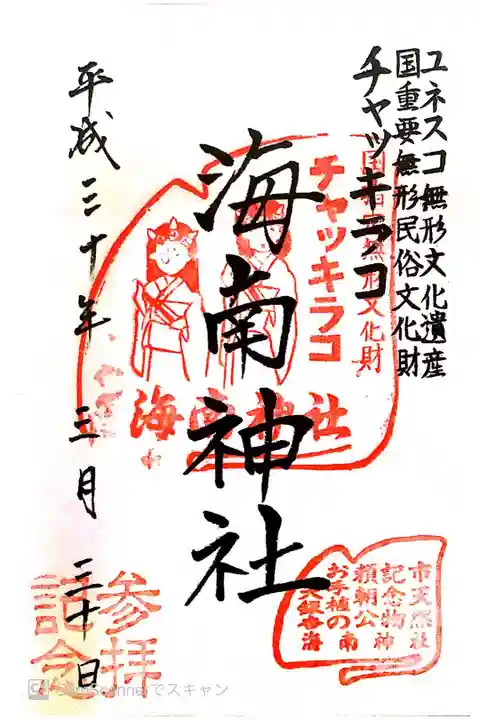 ユネスコ無形文化遺産
国重要無形民俗文化財
チャッキラコ
国指定無形文化財
チャッキラコ
海南神社
海南神社
平成三十年 三月 三十日
市天然
記念物
頼朝公
お手植の
大銀杏
海南神社
参拝
記念
CamScannerでスキャン